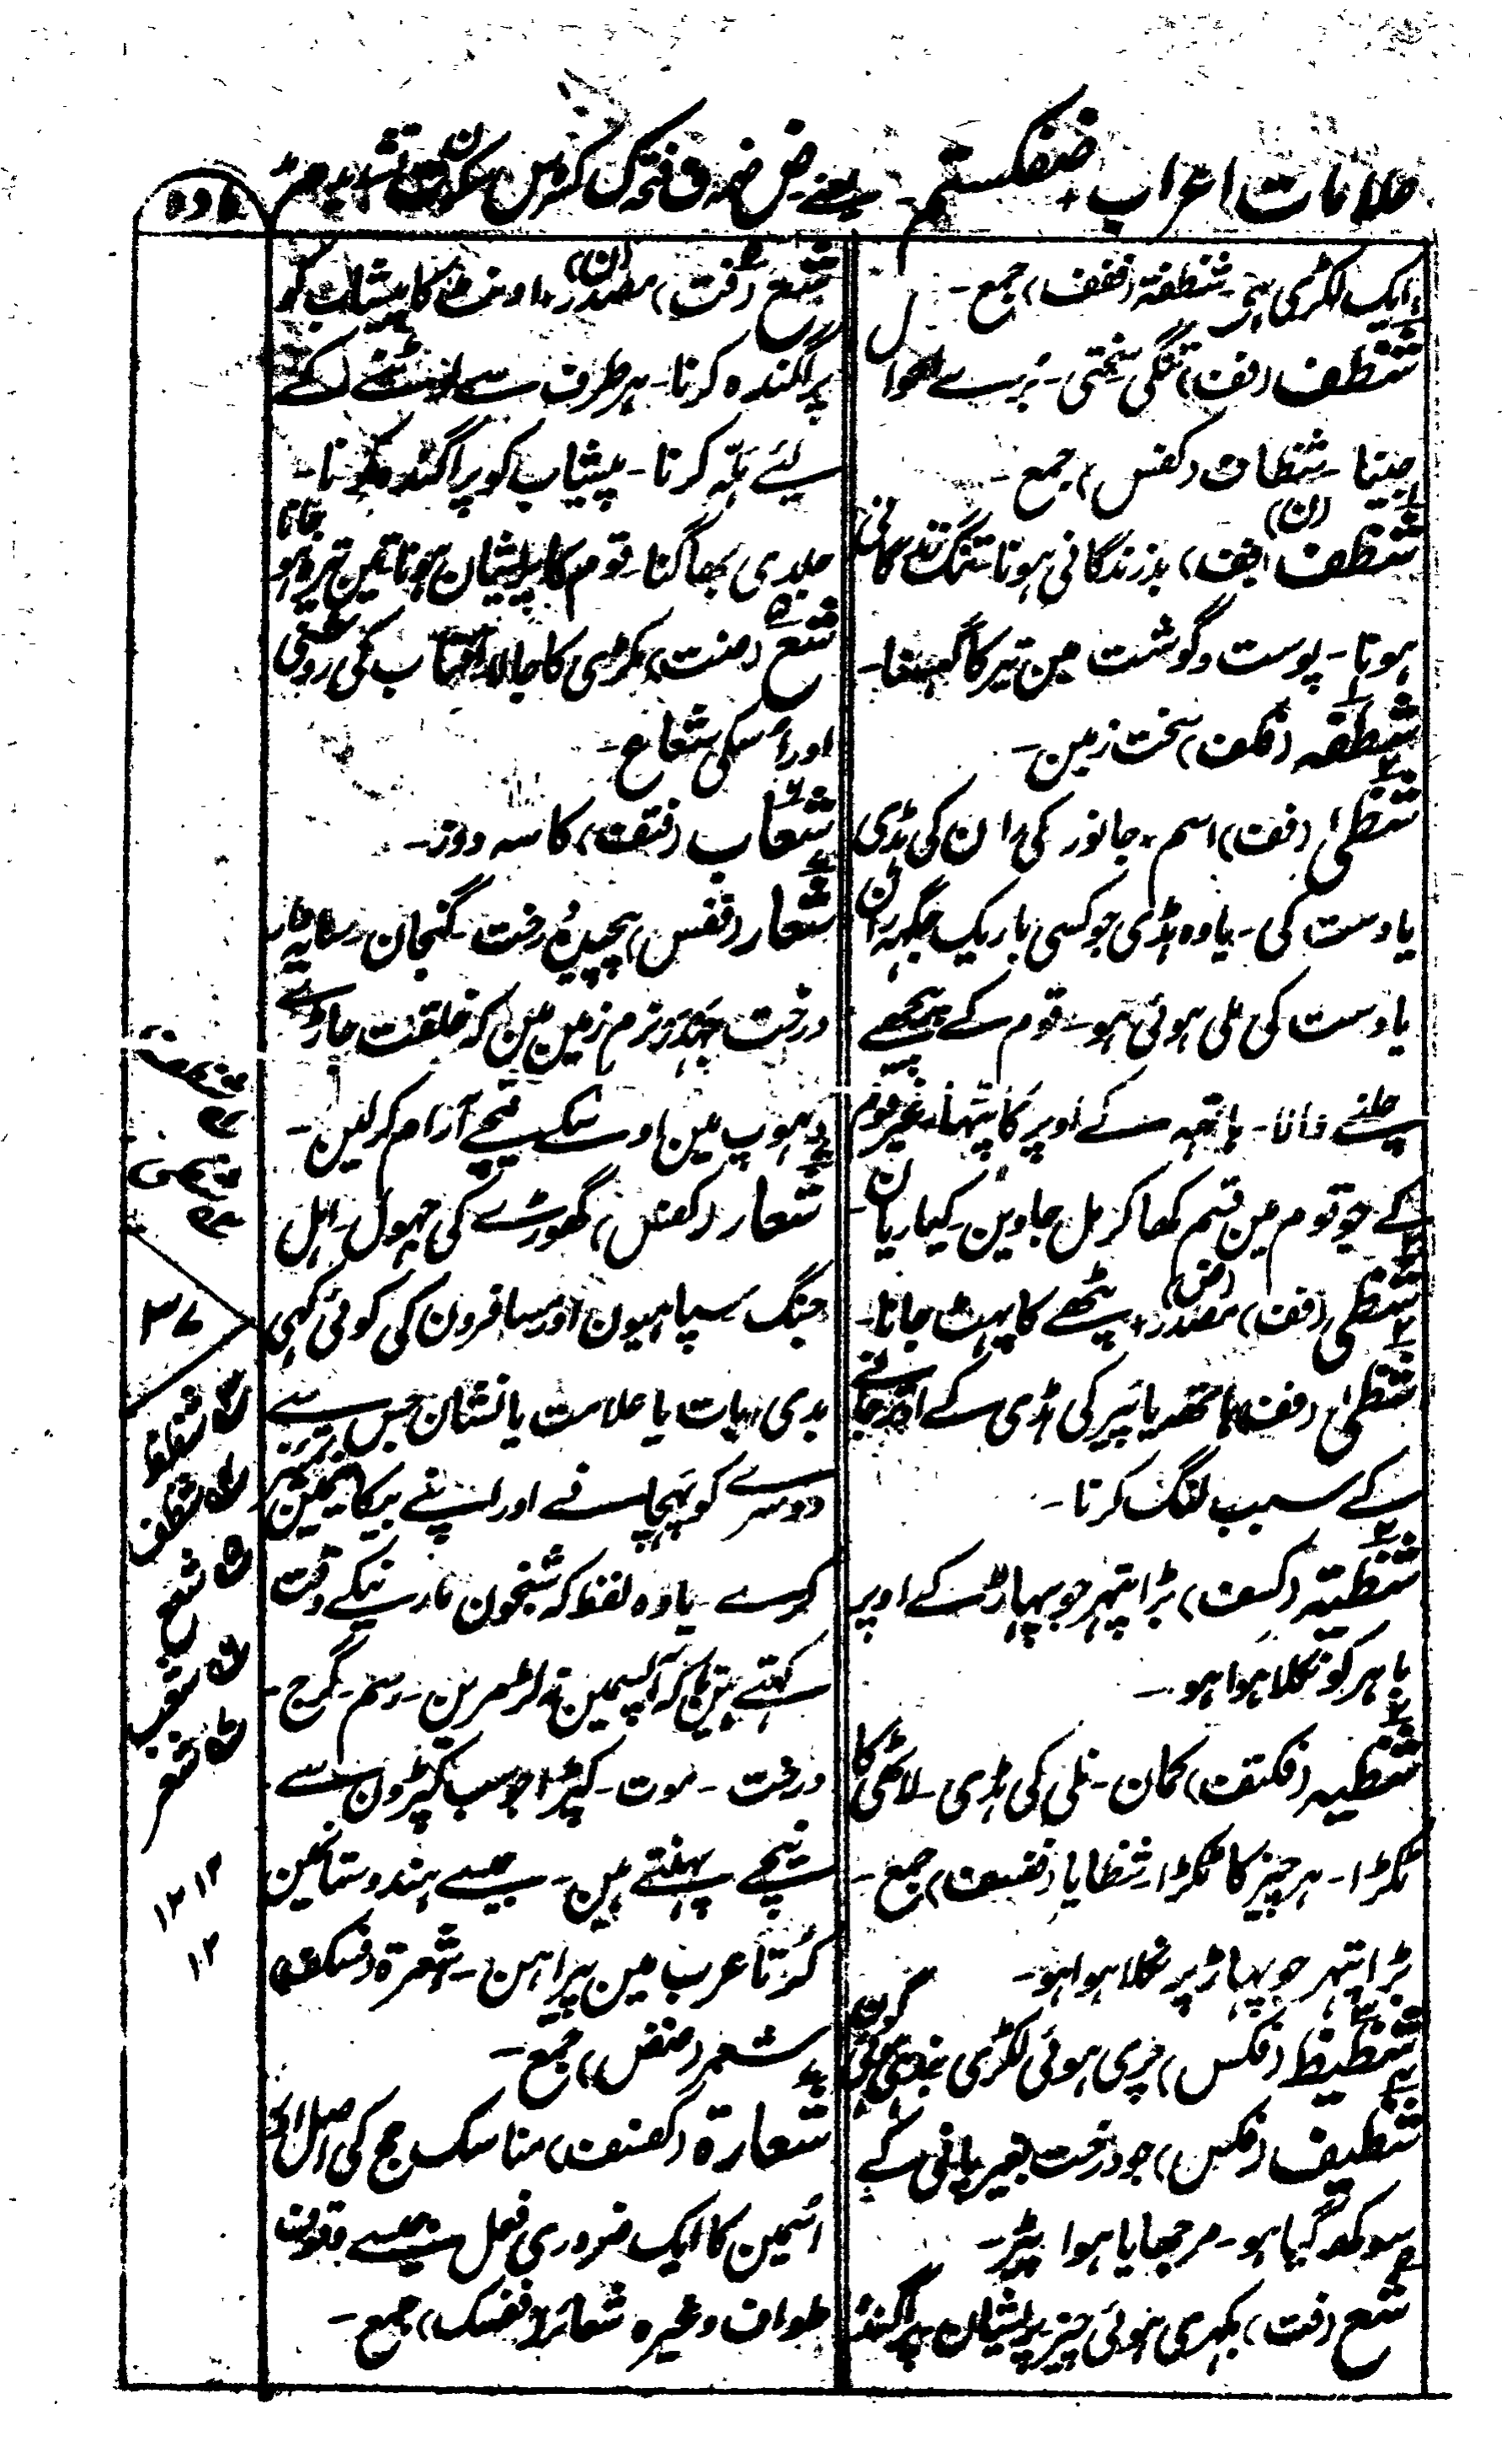 علامات اعراب ضفکستم یعنے ض ضمہ ف فتحہ ک کسرہ س سکون ت تشدید م مد
ایک لکڑی ہے۔ شنظفتہ (ففف) جمع۔
شظف (فف) تنگی سختی۔ بُرے احوا ل
جینا۔ شظاف (کفس) جمع۔
شظف (فف) (ن) بد زندگانی ہونا تنگ زندگانی
ہونا۔ پوست و گوشت مین تیر کا گھسنا۔
شظفہ (فکف) سخت زمین۔
شظی (فف) اسم، جانور کی ران کی ہڈی
یا دست کی۔ یا وہ ہڈی جو کسی باریک جگہہ ران
یا دست کی ملی ہوئی ہو۔ قوم کے پیچھے
چلنے والا۔ ہاتھہ کے اوپر کا پٹھا۔ غیر قوم
کے جو قوم مین قسم کھا کر مل جاوین۔ کیاریان۔
شظی (فف) مصدر (ض)، پٹھے کا پہٹ جانا۔
شظیٰ (فف) ہاتھہ یا پیر کی ہڈی کے اتر جانے
کے سبب لنگ کرنا۔
شظیتہ (کسف) بڑا پتہر جو پہاڑ کے اوپر
باہر کو نکلا ہوا ہو۔
شظیہ (فکتف) کمان۔ نلی کی ہڈی۔ لاٹھی کا
ٹکڑا۔ ہر چیز کا ٹکڑا۔ شظایا (ففسف) جمع۔
بڑا پتہر جو پہاڑ پر نکلا ہوا ہو۔
شظیظ (فکس) چری ہوئی لکڑی بندھی ہوئی گون
شظیف (فکس) جو درخت بغیر پانی کے
سوکھہ گیا ہو۔ مرجھایا ہوا پیڑ۔
شع (فت) بکہری ہوئی چیز پریشان پراگندہ
شع (فت) مصدر (ن)، اونٹ کا پیشاب کو
پراگندہ کرنا۔ ہر طرف سے لوٹنے کے
لیئے ہلّہ کرنا۔ پیشاب کو پراگندہ کرنا۔
جلدی بھاگنا۔ قوم کا پریشان ہونا مین تیرہ ہو جانا
شع (ضت) مکڑی کا جالا۔ آفتاب کی روشنی
اور اُسکی شعاع۔
شعّاب (فتف) کاسہ دوز۔
شعار (ففس) پیچیدہ درخت۔ گنجان۔ سایہ دار
درخت نرم زمین مین کہ خلقت جاڑے
دہوپ مین اوسکے نیچے آرام کرلین۔
شعار (کفس) گھوڑے کی جہول۔ اہل
جنگ سپاہیون اور مسافرون کی کوئی کہی
بدی بات یا علامت یا نشان جس سے
دوسرے کو پہچانے اور اپنے بیگانے مین تمیز
کرے۔ یا وہ لفظ کہ شبخون مارنیکے وقت
کہتے ہین تاکہ آپسمین نہ لڑ مرین۔ رسم۔ گرج۔
درخت۔ موت۔ کپڑا جو سب کپڑون سے
نیچے پہنتے ہین۔ جیسے ہندوستانمین
کُرتا عرب مین پیراہن۔ شعرۃ (فسکف)
شعر (ضفس) جمع۔
شعارۃ (کفنف) مناسک حج کی اصل اور
اُسمین کا ایک ضروری فعل جیسے وقوف
طواف وغیرہ شعائر (ففسک) جمع۔
۳۷
شظظ
شظف
شع
شعب
شعر
۱۲ ۱۲
۱۲